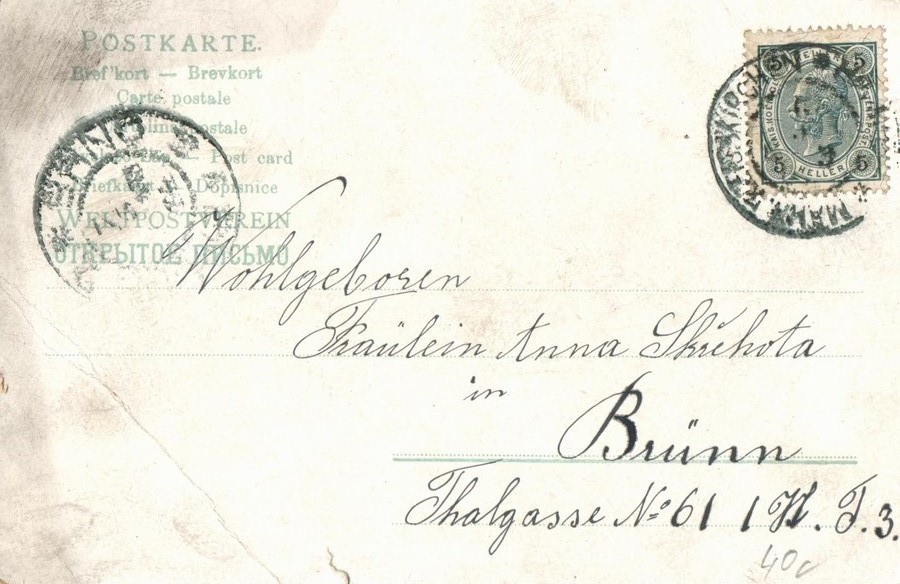 POSTKARTE.
Bref'kort — Brevkort
Carte postale
postale
— Post card
Briefkaart — Dopisnice
WELTPOSTVEREIN
ОТКРЫТОЕ ПИСЬМО
5 5
5 5
HELLER
Wohlgeboren
Fräulein Anna Skřehota
in
Brünn
Thalgasse No 61 1 H. T. 3.
40c